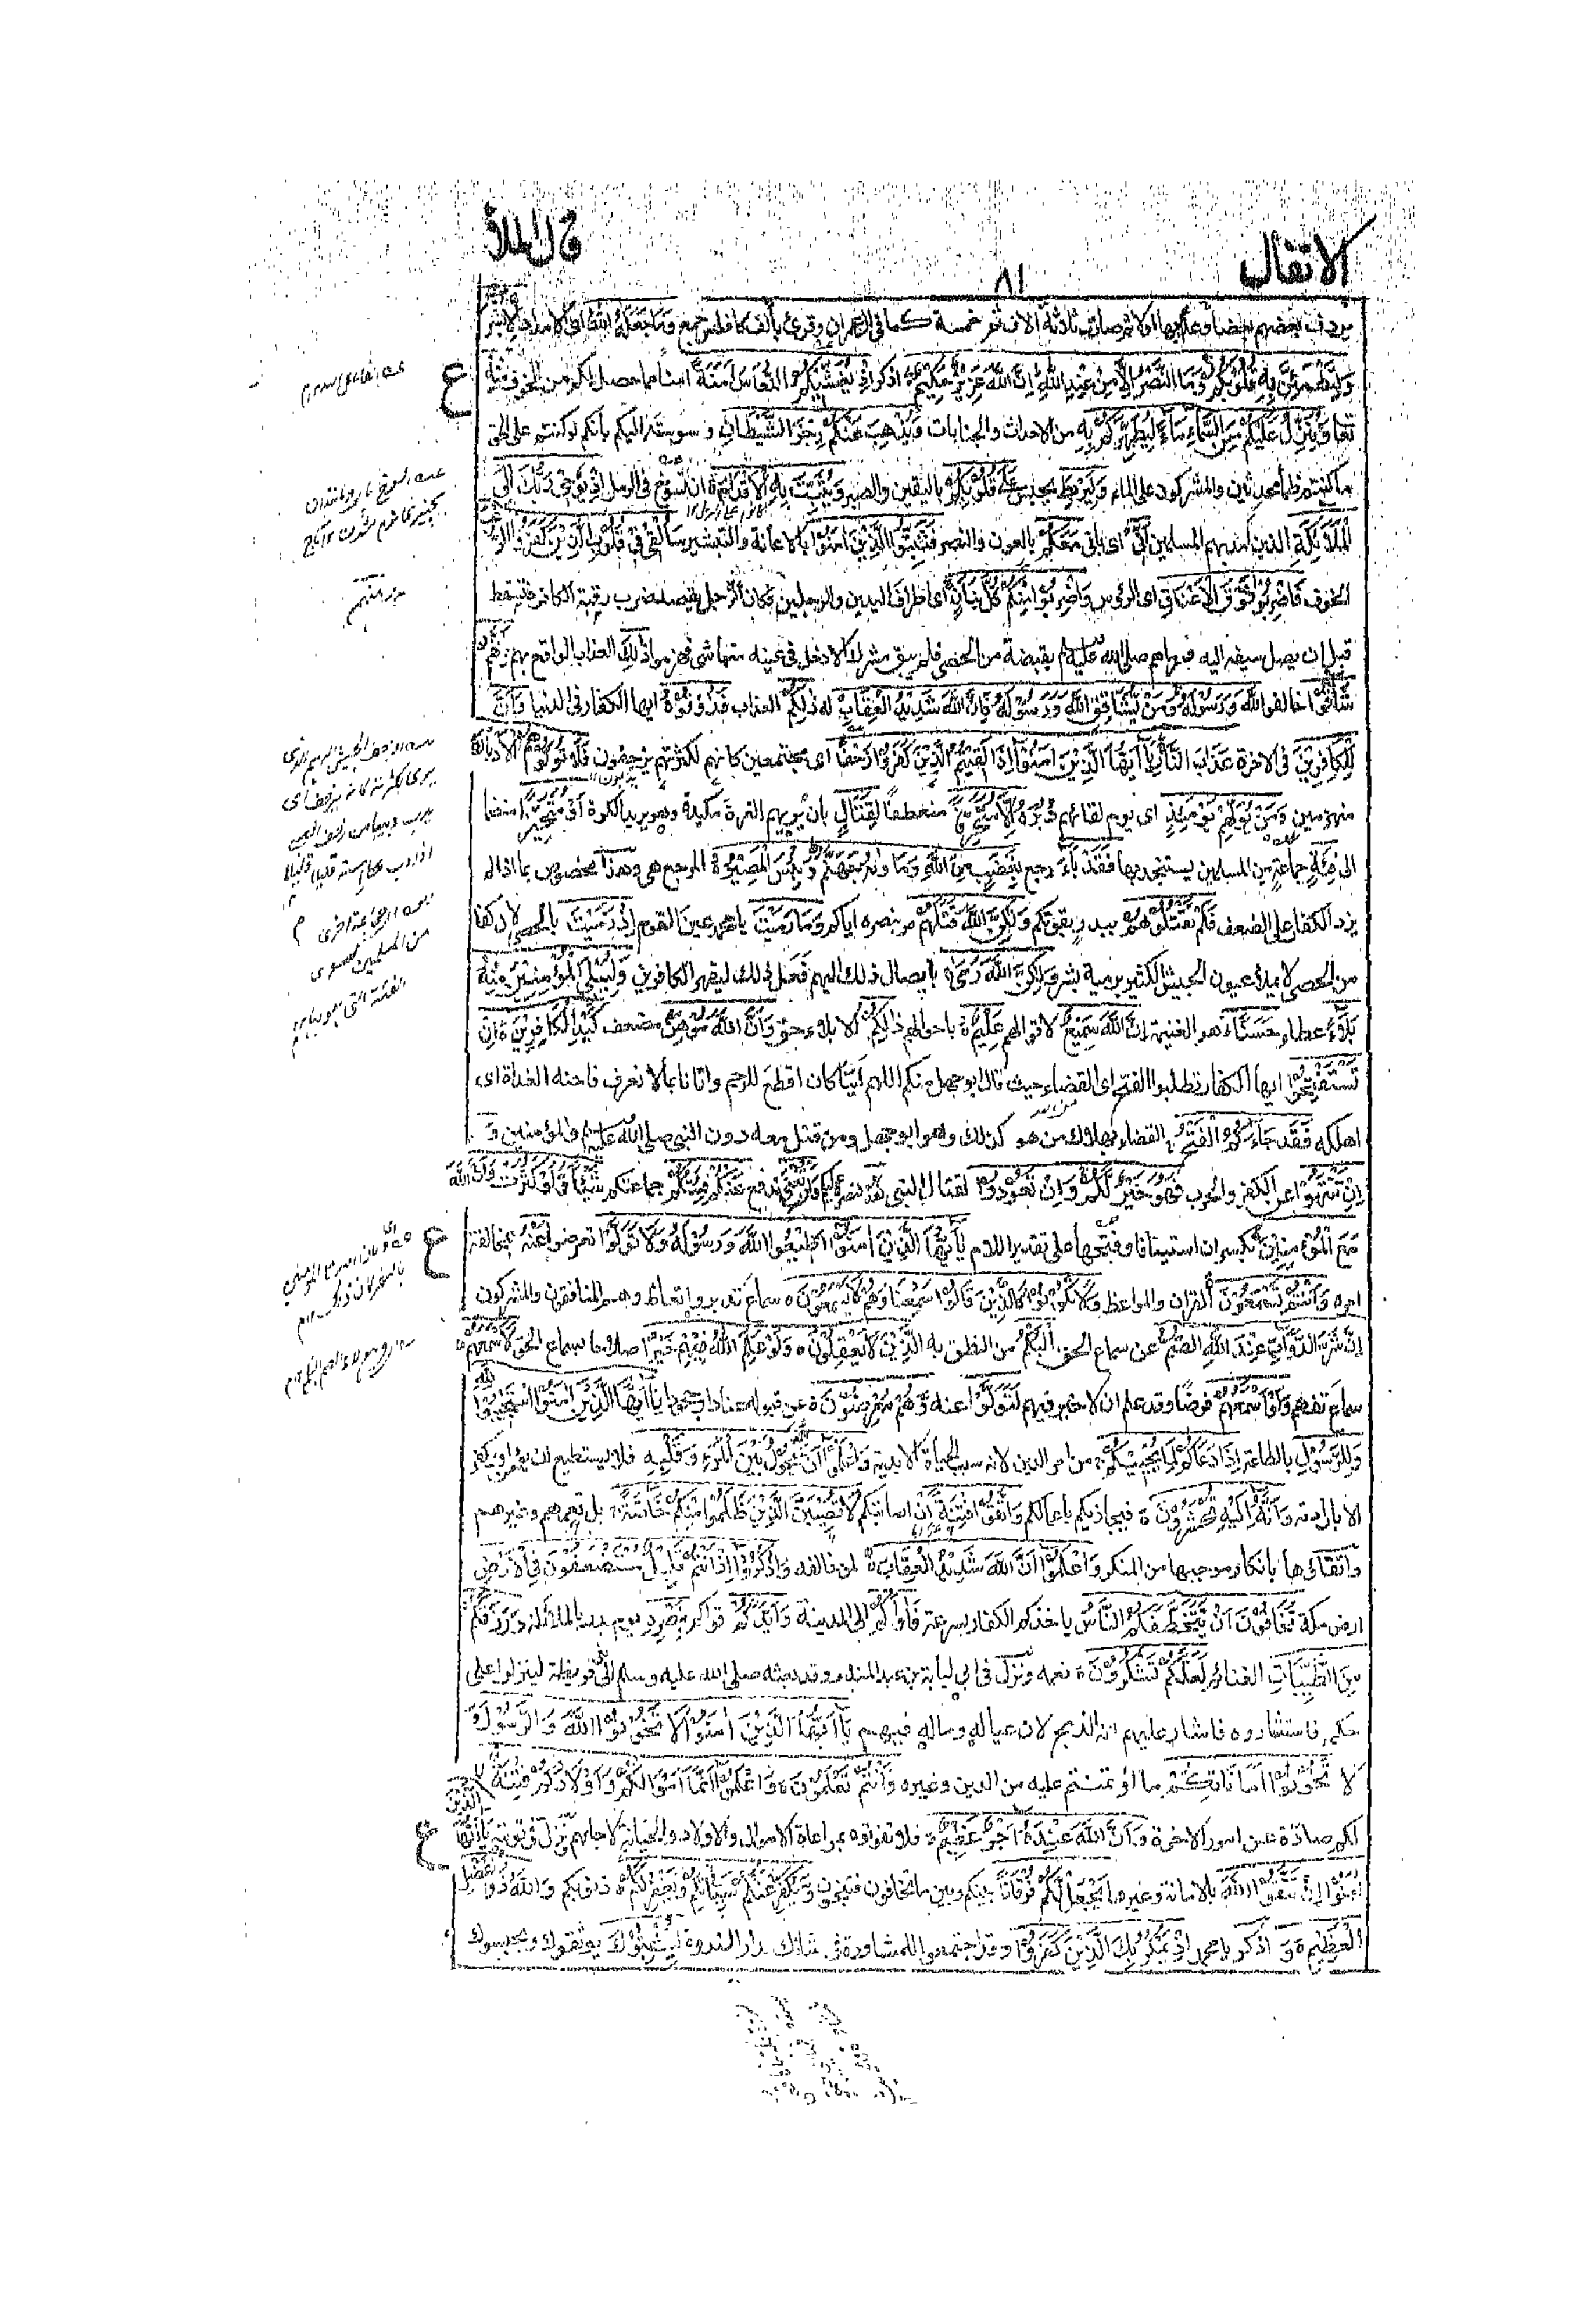 الانفال
٨١
قال الملأ
يردف بعضهم بعضا وعدهم بها اولا ثم صارت ثلاثة الاف ثم خمسة كما في ال عمران وقرئ بألف كافلس جمع وَمَا جَعَلَهُ اللهُ اى الامداد الا بشرى
وَلِتَطْمَئِنَّ بِهٖ قُلُوْبُكُمْ وَمَا النَّصْرُ اِلَّا مِنْ عِنْدِ اللهِ اِنَّ اللهَ عَزِيْزٌ حَكِيْمٌ اذكر اِذْ يُغَشِّيْكُمُ النُّعَاسَ اَمَنَةً امنا مما حصل لكم من الخوف مِنْهُ
تعالى وَيُنَزِّلُ عَلَيْكُمْ مِنَ السَّمَاءِ مَاءً لِيُطَهِّرَكُمْ بِهٖ من الاحداث والجنابات وَيُذْهِبَ عَنْكُمْ رِجْزَ الشَّيْطَانِ وسوسته اليكم بانكم لو كنتم على الحق
ما كنتم ظمأ محدثين والمشركون على الماء وَلِيَرْبِطَ يحبس عَلٰى قُلُوْبِكُمْ باليقين والصبر وَيُثَبِّتَ بِهِ الْاَقْدَامَ ان تسوخ في الرمل اِذْ يُوْحِيْ رَبُّكَ اِلَى
الْمَلَائِكَةِ الذين امد بهم المسلمين اَنِّيْ اى بانى مَعَكُمْ بالعون والنصر فَثَبِّتُوا الَّذِيْنَ اٰمَنُوْا بالاعانة والتبشير سَاُلْقِيْ فِيْ قُلُوْبِ الَّذِيْنَ كَفَرُوا الرُّعْبَ
الخوف فَاضْرِبُوْا فَوْقَ الْاَعْنَاقِ اى الرؤس وَاضْرِبُوْا مِنْهُمْ كُلَّ بَنَانٍ اى اطراف اليدين والرجلين فكان الرجل يقصد ضرب رقبة الكافر فتسقط
قبل ان يصل سيفه اليه فرماهم صلى الله عليه وسلم بقبضة من الحصى فلم يبق مشرك الا دخل في عينيه منها شئ فهزموا ذٰلِكَ العذاب الواقع بهم بِاَنَّهُمْ
شَاقُّوا خالفوا اللهَ وَرَسُوْلَهُ وَمَنْ يُشَاقِقِ اللهَ وَرَسُوْلَهُ فَاِنَّ اللهَ شَدِيْدُ الْعِقَابِ له ذٰلِكُمْ العذاب فَذُوْقُوْهُ ايها الكفار في الدنيا وَاَنَّ
لِلْكَافِرِيْنَ في الاخرة عَذَابَ النَّارِ يَا اَيُّهَا الَّذِيْنَ اٰمَنُوْا اِذَا لَقِيْتُمُ الَّذِيْنَ كَفَرُوْا زَحْفًا اى مجتمعين كانهم لكثرتهم يزحفون فَلَا تُوَلُّوْهُمُ الْاَدْبَارَ
منهزمين وَمَنْ يُوَلِّهِمْ يَوْمَئِذٍ اى يوم لقائهم دُبُرَهُ اِلَّا مُتَحَرِّفًا منعطفا لِقِتَالٍ بان يريهم الفرة مكيدة وهو يريد الكرة اَوْ مُتَحَيِّزًا منضما
اِلٰى فِئَةٍ جماعة من المسلمين يستنجد بها فَقَدْ بَاءَ رجع بِغَضَبٍ مِنَ اللهِ وَمَاْوٰهُ جَهَنَّمُ وَبِئْسَ الْمَصِيْرُ المرجع هى وهذا مخصوص بما اذا لم
يزد الكفار على الضعف فَلَمْ تَقْتُلُوْهُمْ ببدر بقوتكم وَلٰكِنَّ اللهَ قَتَلَهُمْ بنصره اياكم وَمَا رَمَيْتَ يا محمد عين القوم اِذْ رَمَيْتَ بالحصى لان كفا
من الحصى لا يملأ عيون الجيش الكثير برمية بشر وَلٰكِنَّ اللهَ رَمٰى بايصال ذلك اليهم فعل ذلك ليقهر الكافرين وَلِيُبْلِيَ الْمُؤْمِنِيْنَ مِنْهُ
بَلَاءً عطاء حَسَنًا هو الغنيمة اِنَّ اللهَ سَمِيْعٌ لاقوالهم عَلِيْمٌ باحوالهم ذٰلِكُمْ الابلاء حق وَاَنَّ اللهَ مُوْهِنُ مضعف كَيْدِ الْكَافِرِيْنَ اِنْ
تَسْتَفْتِحُوْا ايها الكفار تطلبوا الفتح اى القضاء حيث قال ابو جهل منكم اللهم اينا كان اقطع للرحم واتانا بما لا نعرف فاحنه الغداة اى
اهلكه فَقَدْ جَاءَكُمُ الْفَتْحُ القضاء بهلاك من هو كذلك وهو ابو جهل ومن قتل معه دون النبى صلى الله عليه وسلم والمؤمنين وَ
اِنْ تَنْتَهُوْا عن الكفر والحرب فَهُوَ خَيْرٌ لَّكُمْ وَاِنْ تَعُوْدُوْا لقتال النبى نَعُدْ لنصره عليكم وَلَنْ تُغْنِيَ تدفع عَنْكُمْ فِئَتُكُمْ جماعتكم شَيْئًا وَلَوْ كَثُرَتْ وَاَنَّ اللهَ
مَعَ الْمُؤْمِنِيْنَ بكسر ان استينافا وفتحها على تقدير اللام يٰاَيُّهَا الَّذِيْنَ اٰمَنُوْا اَطِيْعُوا اللهَ وَرَسُوْلَهُ وَلَا تَوَلَّوْا تعرضوا عَنْهُ بمخالفة
امره وَاَنْتُمْ تَسْمَعُوْنَ القران والمواعظ وَلَا تَكُوْنُوْا كَالَّذِيْنَ قَالُوْا سَمِعْنَا وَهُمْ لَا يَسْمَعُوْنَ سماع تدبر واتعاظ وهم المنافقون والمشركون
اِنَّ شَرَّ الدَّوَابِّ عِنْدَ اللهِ الصُّمُّ عن سماع الحق الْبُكْمُ من النطق به الَّذِيْنَ لَا يَعْقِلُوْنَ وَلَوْ عَلِمَ اللهُ فِيْهِمْ خَيْرًا صلاحا بسماع الحق لَاَسْمَعَهُمْ
سماع تفهم وَلَوْ اَسْمَعَهُمْ فرضا وقد علم ان لا خير فيهم لَتَوَلَّوْا عنه وَهُمْ مُعْرِضُوْنَ عن قبوله عنادا وجحودا يَا اَيُّهَا الَّذِيْنَ اٰمَنُوا اسْتَجِيْبُوْا لِلّٰهِ
وَلِلرَّسُوْلِ بالطاعة اِذَا دَعَاكُمْ لِمَا يُحْيِيْكُمْ من امر الدين لانه سبب الحيٰوة الابدية وَاعْلَمُوْا اَنَّ اللهَ يَحُوْلُ بَيْنَ الْمَرْءِ وَقَلْبِهٖ فلا يستطيع ان يؤمن او يكفر
الا بارادته وَاَنَّهُ اِلَيْهِ تُحْشَرُوْنَ فيجازيكم باعمالكم وَاتَّقُوْا فِتْنَةً ان اصابتكم لَا تُصِيْبَنَّ الَّذِيْنَ ظَلَمُوْا مِنْكُمْ خَاصَّةً بل تعمهم وغيرهم
واتقاؤها بانكار موجبها من المنكر وَاعْلَمُوْا اَنَّ اللهَ شَدِيْدُ الْعِقَابِ لمن خالفه وَاذْكُرُوْا اِذْ اَنْتُمْ قَلِيْلٌ مُسْتَضْعَفُوْنَ فِي الْاَرْضِ
ارض مكة تَخَافُوْنَ اَنْ يَتَخَطَّفَكُمُ النَّاسُ ياخذكم الكفار بسرعة فَاٰوٰكُمْ الى المدينة وَاَيَّدَكُمْ قواكم بِنَصْرِهٖ يوم بدر بالملائكة وَرَزَقَكُمْ
مِنَ الطَّيِّبَاتِ الغنائم لَعَلَّكُمْ تَشْكُرُوْنَ نعمه ونزل في ابي لبابة بن عبد المنذر وقد بعثه صلى الله عليه وسلم الى بنى قريظة لينزلوا على
حكمه فاستشاروه فاشار عليهم انه الذبح لان عياله وماله فيهم يَا اَيُّهَا الَّذِيْنَ اٰمَنُوْا لَا تَخُوْنُوا اللهَ وَالرَّسُوْلَ وَ
لَا تَخُوْنُوْا اَمَانَاتِكُمْ ما اؤتمنتم عليه من الدين وغيره وَاَنْتُمْ تَعْلَمُوْنَ وَاعْلَمُوْا اَنَّمَا اَمْوَالُكُمْ وَاَوْلَادُكُمْ فِتْنَةٌ
لكم صادة عن امور الاخرة وَاَنَّ اللهَ عِنْدَهُ اَجْرٌ عَظِيْمٌ فلا تفوتوه بمراعاة الاموال والاولاد والخيانة لاجلهم ونزل في توبته يَا اَيُّهَا الَّذِيْنَ
اٰمَنُوْا اِنْ تَتَّقُوا اللهَ بالامانة وغيرها يَجْعَلْ لَكُمْ فُرْقَانًا بينكم وبين ما تخافون فتنجون وَيُكَفِّرْ عَنْكُمْ سَيِّاٰتِكُمْ وَيَغْفِرْ لَكُمْ ذنوبكم وَاللهُ ذُو الْفَضْلِ
الْعَظِيْمِ وَ اذكر يا محمد اِذْ يَمْكُرُ بِكَ الَّذِيْنَ كَفَرُوْا وقد اجتمعوا للمشاورة في شانك بدار الندوة لِيُثْبِتُوْكَ يوثقوك ويحبسوك
ع
ع
ع